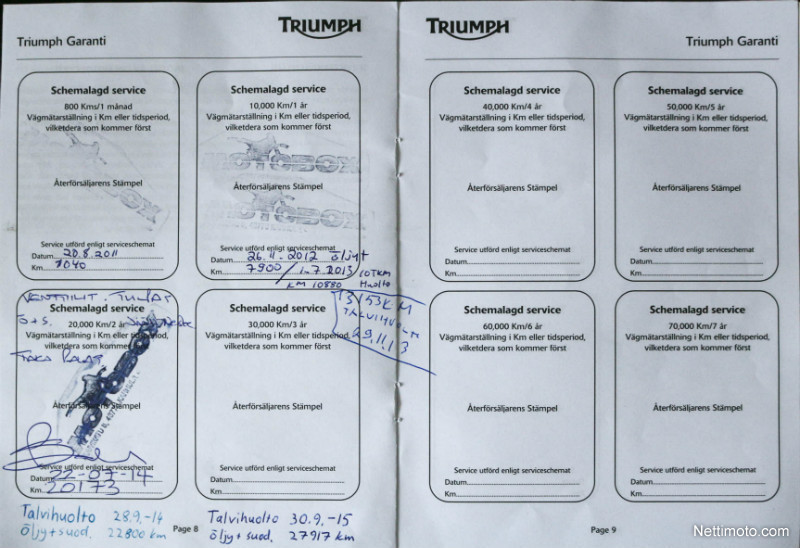 TRIUMPH
Triumph Garanti
Schemalagd service
800 Kms/1 månad
Vägmätarställning i Km eller tidsperiod,
vilketdera som kommer först
MOTOBOX
Återförsäljarens Stämpel
Service utförd enligt serviceschemat
Datum 20.8.2011
Km 1040
Schemalagd service
10,000 Km/1 år
Vägmätarställning i Km eller tidsperiod,
vilketdera som kommer först
MOTOBOX
Återförsäljarens Stämpel
MOTOBOX
Service utförd enligt serviceschemat
Datum 26.11-2012 öljyt
Km 7900 / 1-7.2013 10TKM
KM 10880 Huolto
13153KM
TALVIHUOLTO
29.11.13
VENTTIILIT. TULPAT
Ö+S.
Schemalagd service
20,000 Km/2 år
Vägmätarställning i Km eller tidsperiod,
vilketdera som kommer först
TAKA PALAT
MOTOBOX
Återförsäljarens Stämpel
Service utförd enligt serviceschemat
Datum 22-07-14
Km 20173
Talvihuolto 28.9.-14
öljy+suod. 22800 km
Schemalagd service
30,000 Km/3 år
Vägmätarställning i Km eller tidsperiod,
vilketdera som kommer först
Återförsäljarens Stämpel
Service utförd enligt serviceschemat
Datum
Km
Talvihuolto 30.9.-15
öljy+suod. 27917 km
Page 8
TRIUMPH
Triumph Garanti
Schemalagd service
40,000 Km/4 år
Vägmätarställning i Km eller tidsperiod,
vilketdera som kommer först
Återförsäljarens Stämpel
Service utförd enligt serviceschemat
Datum
Km
Schemalagd service
50,000 Km/5 år
Vägmätarställning i Km eller tidsperiod,
vilketdera som kommer först
Återförsäljarens Stämpel
Service utförd enligt serviceschemat
Datum
Km
Schemalagd service
60,000 Km/6 år
Vägmätarställning i Km eller tidsperiod,
vilketdera som kommer först
Återförsäljarens Stämpel
Service utförd enligt serviceschemat
Datum
Km
Schemalagd service
70,000 Km/7 år
Vägmätarställning i Km eller tidsperiod,
vilketdera som kommer först
Återförsäljarens Stämpel
Service utförd enligt serviceschemat
Datum
Km
Page 9
Nettimoto.com